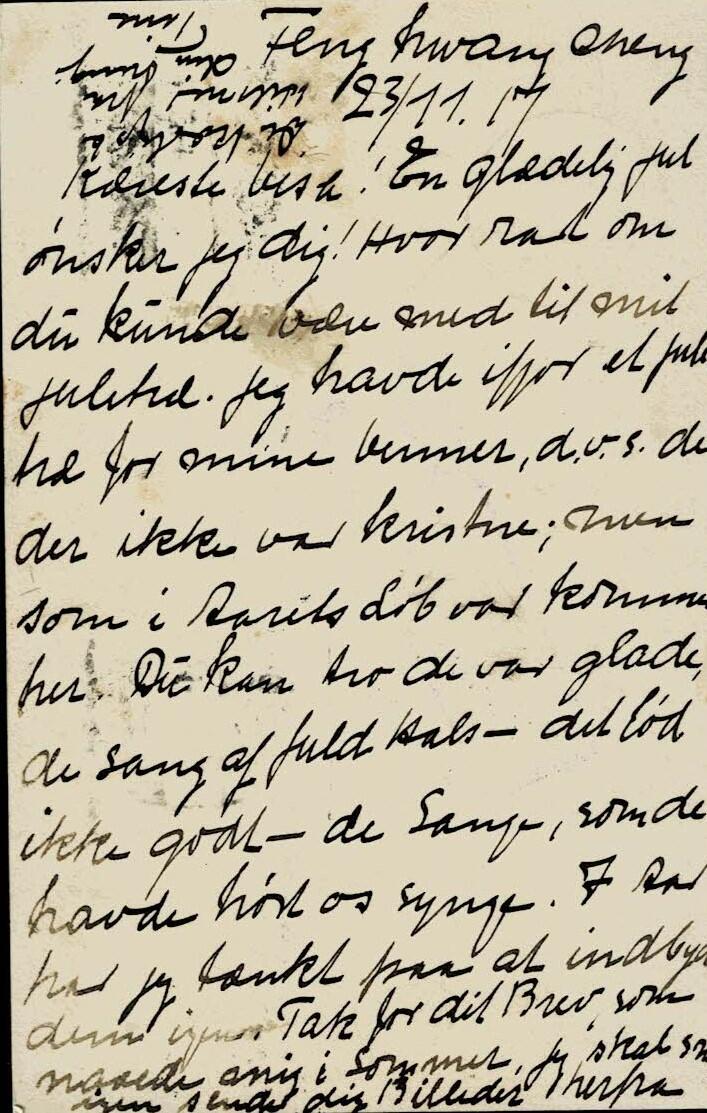 Feng hwang cheng
23/11. 17
Kæreste Lisa! En glædelig Jul
ønsker jeg dig! Hvor rart om
du kunde være med til mit
juletræ. Jeg havde ifjor et jule
træ for mine venner, d.v.s. de
der ikke var kristne; men
som i Aarets Løb var komme
her. Du kan tro de var glade,
de sang af fuld Hals – det lød
ikke godt – de Sange, som de
havde hørt os synge. I Aar
har jeg tænkt paa at indbyde
dem igen. Tak for dit Brev, som
naaede mig i Sommer, jeg skal snart
igen sende dig Billeder herfra
kærligst
Hilsen fra
din